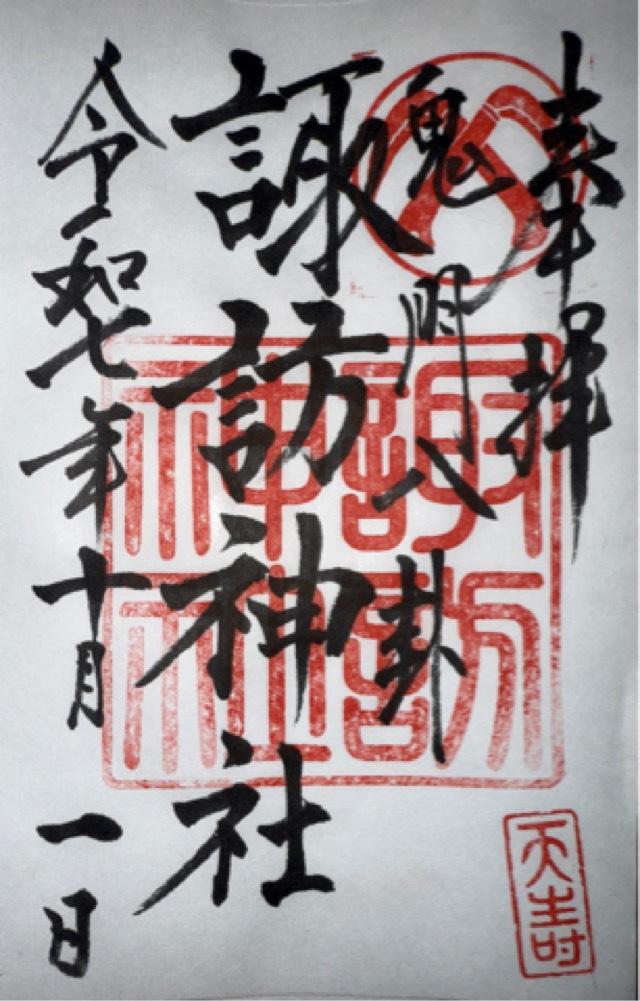 奉拝
鬼門八卦
諏訪神社
令和七年十月一日
諏訪神社